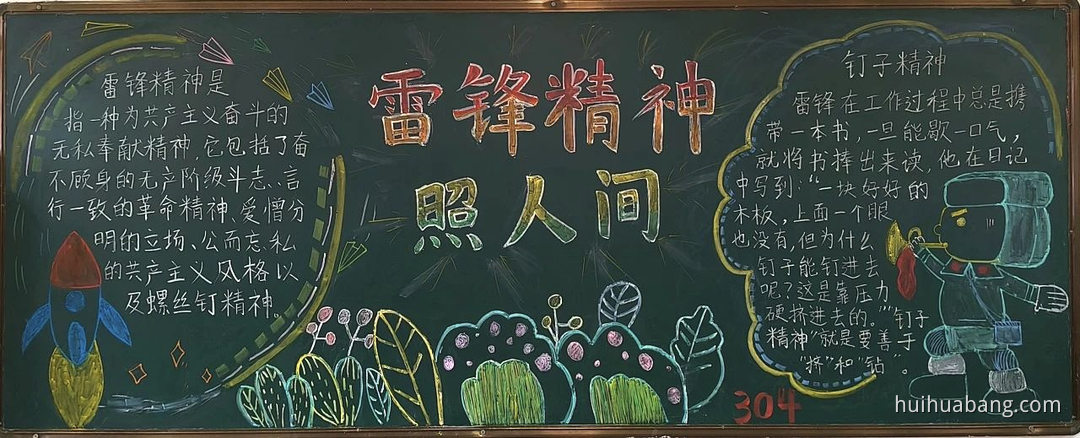 雷锋精神是
指一种为共产主义奋斗的
无私奉献精神，它包括了奋
不顾身的无产阶级斗志、言
行一致的革命精神、爱憎分
明的立场、公而忘私
的共产主义风格以
及螺丝钉精神。
雷锋精神
照人间
钉子精神
雷锋在工作过程中总是携
带一本书，一旦能歇一口气，
就将书捧出来读，他在日记
中写到：“一块好好的
木板，上面一个眼
也没有，但为什么
钉子能钉进去
呢？这是靠压力
硬挤进去的。”“钉子
精神”就是要善于
“挤”和“钻”。
304
huihuabang.com